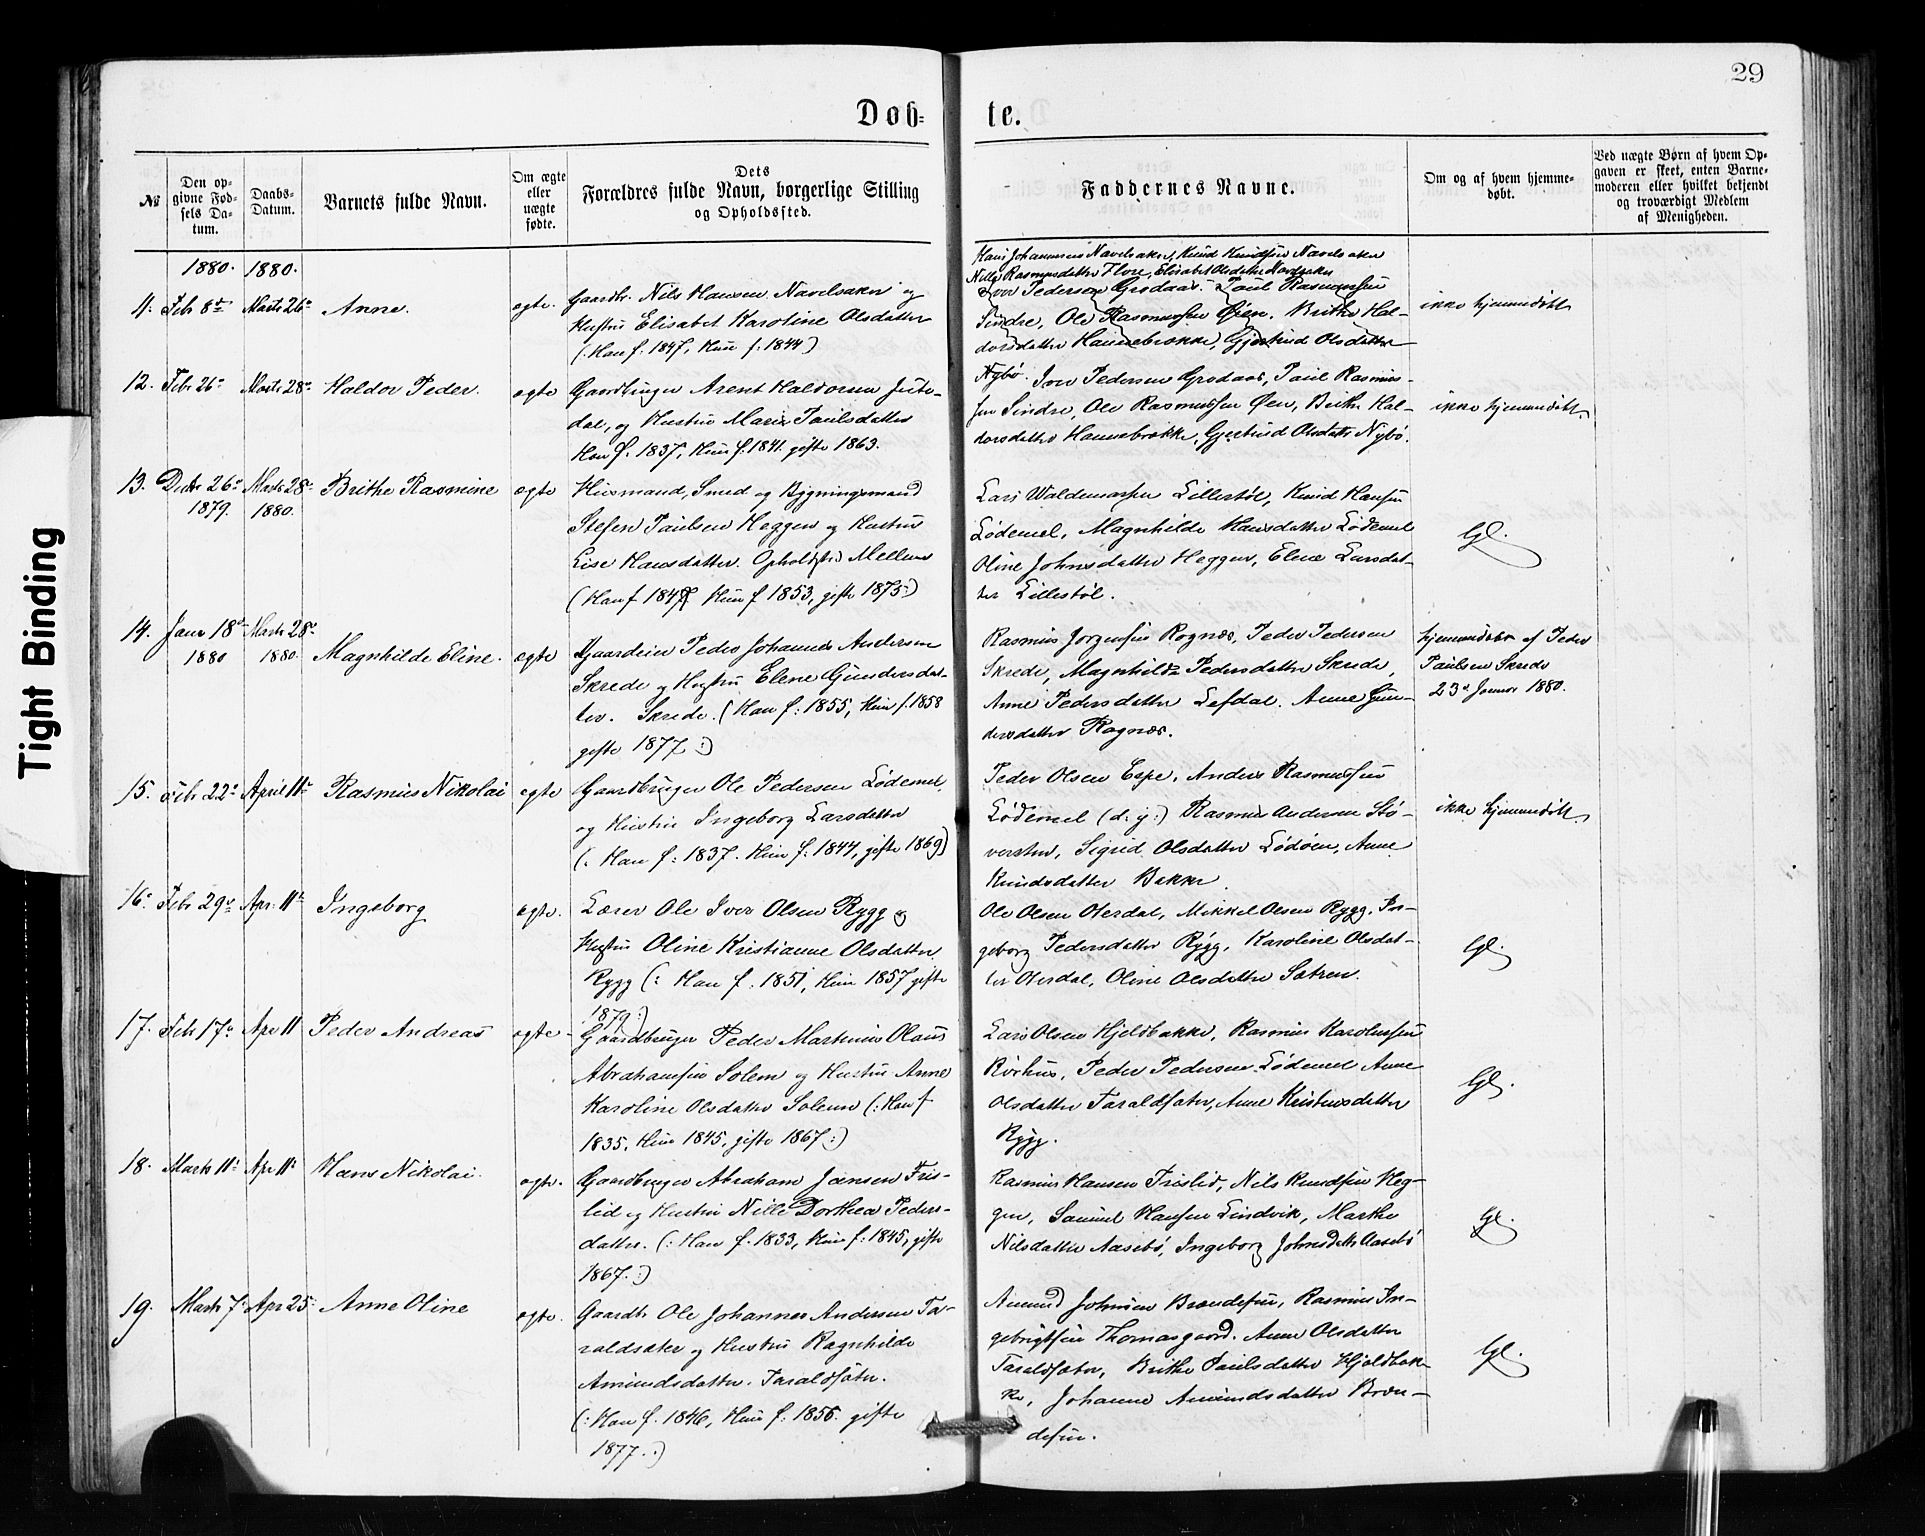 29
Døb= te.
№
Den op-
givne Fød-
sels Da-
tum.
Daabs-
Datum.
Barnets fulde Navn.
Om ægte
eller
uægte
fødte.
Dets
Forældres fulde Navn, borgerlige Stilling
og Opholdssted.
Faddernes Navne.
Om og af hvem hjemme-
døbt.
Ved uægte Børn af hvem Op-
gaven er skeet, enten Barne-
moderen eller hvilket bekjendt
og troværdigt Medlem
af Menigheden.
1880. 1880.
11. Feb 8de Marts 26de Anne. ægte.
Gaardbr. Nils Hansen Navelsaker og
Hustru Elisabet Karoline Olsdatter
(: Han f: 1847, Hun f: 1844)
Hans Johannesen Navelsaker, Knud Knudsen Navelsaker
Nille Rasmusdatter Flore, Elisabet Olsdatter Navelsaker
Iver Pedersen Grodaas. Paul Rasmussen
Sindre, Ole Rasmussen Øien, Brithe Hal-
dorsdatter Hannebrekke, Gjertrud Olsdatter
ikke hjemmedøbt
12. Febr 26de Marts 28de Haldor Peder. ægte
Gaardbruger Arent Haldorsen Jute-
dal, og Hustru Maria Paulsdatter
Han f. 1837, Hun f. 1841. gifte 1863.
Nybø. Iver Pedersen Grodaas, Paul Rasmus-
sen Sindre, Ole Rasmussen Øen, Brithe Hal-
dorsdatter Hannebrekke, Gjertrud Olsdatter Nybø.
ikke hjemmedøbt.
13. Decbr 26de Marts 28de Brithe Rasmine ægte
1879. 1880.
Husmand, Smed og Bygningsmand
Stefen Paulsen Heggen og Hustru
Lise Hansdatter. Opholdssted Mellem
(Han f 1847 Hun f 1853, gifte 1875:)
Lars Waldemarsen Lillestøl, Knud Hansen
Lødemel, Magnhilde Hansdatter Lødemel
Oline Johnsdatter Heggen, Eline Larsdat-
ter Lillestøl.
Gl.
14. Janr 18de Marts 28de Magnhilde Eline. ægte
1880 1880.
Gaardeier Peder Johannes Andersen
Skrede og Hustru Elene Gundersdat-
ter. Skrede. (Han f: 1855, Hun f. 1858
gifte 1877:)
Rasmus Jørgensen Rognæs, Peder Pedersen
Skrede, Magnhilde Pedersdatter Skrede,
Anne Pedersdatter Lefdal. Anne Gun-
dersdatter Rognæs.
hjemmedøbt af Peder
Paulsen Skrede
23de Januar 1880.
15. Feb. 22de April 11te Rasmus Nikolai ægte
Gaardbruger Ole Pedersen Lødemel,
og Hustru Ingeborg Larsdatter
(: Han f: 1837. Hun f: 1844, gifte 1869)
Peder Olsen Espe, Anders Rasmussen
Lødemel (d: y:) Rasmus Andersen Stø-
versten, Sigrid Olsdatter Lødøen, Anne
Knudsdatter Bakke.
ikke hjemmedøbt.
16. Febr 29de Apr. 11te Ingeborg ægte.
Lærer Ole Iver Olsen Rygg og
Hustru Oline Kristianne Olsdatter
Rygg (: Han f. 1851, Hun 1857 gifte
1879:)
Ole Olsen Oterdal, Mikkel Olsen Rygg, In-
geborg Pedersdatter Rygg, Karoline Olsdat-
ter Oterdal, Oline Olsdatter Sætren.
Gl.
17. Feb 17de Apr 11 Peder Andreas ægte
Gaardbruger Peder Martinus Olaus
Abrahamsen Solem og Hustru Anne
Karoline Olsdatter Solem (: Han f
1835, Hun 1845, gifte 1867:)
Lars Olsen Hjelbakke, Rasmus Karolussen
Rørhus, Peder Pedersen Lødemel Anne
Olsdatter Taraldsæter, Anne Kristensdatter
Rygg.
Gl.
18. Marts 11te Apr 11te Hans Nikolai. ægte.
Gaardbruger Abraham Jansen Fris-
lid og Hustru Nille Dorthea Peders-
datter. (: Han f. 1833, Hun f: 1845, gifte
1867.:)
Rasmus Hansen Frislid, Nils Knudsen Heg-
gen, Samuel Hansen Lindvik, Marthe
Nilsdatter Aasebø, Ingeborg Johnsdatter Aasebø
Gl.
19. Marts 7de Apr 25 Anne Oline ægte.
Gaardb. Ole Johannes Andersen Ta-
raldsæter og Hustru Ragnhilde
Amundsdatter. Taraldsæter.
(: Han f. 1846, Hun f. 1856. gifte
1877.:)
Amund Johnsen Brændesen, Rasmus In-
gebrigtsen Thomasgaard. Anne Olsdatter
Taraldsæter, Brithe Paulsdatter Hjelbak-
ke, Johanne Amundsdatter Bræn-
desen.
Gl.
Tight Binding